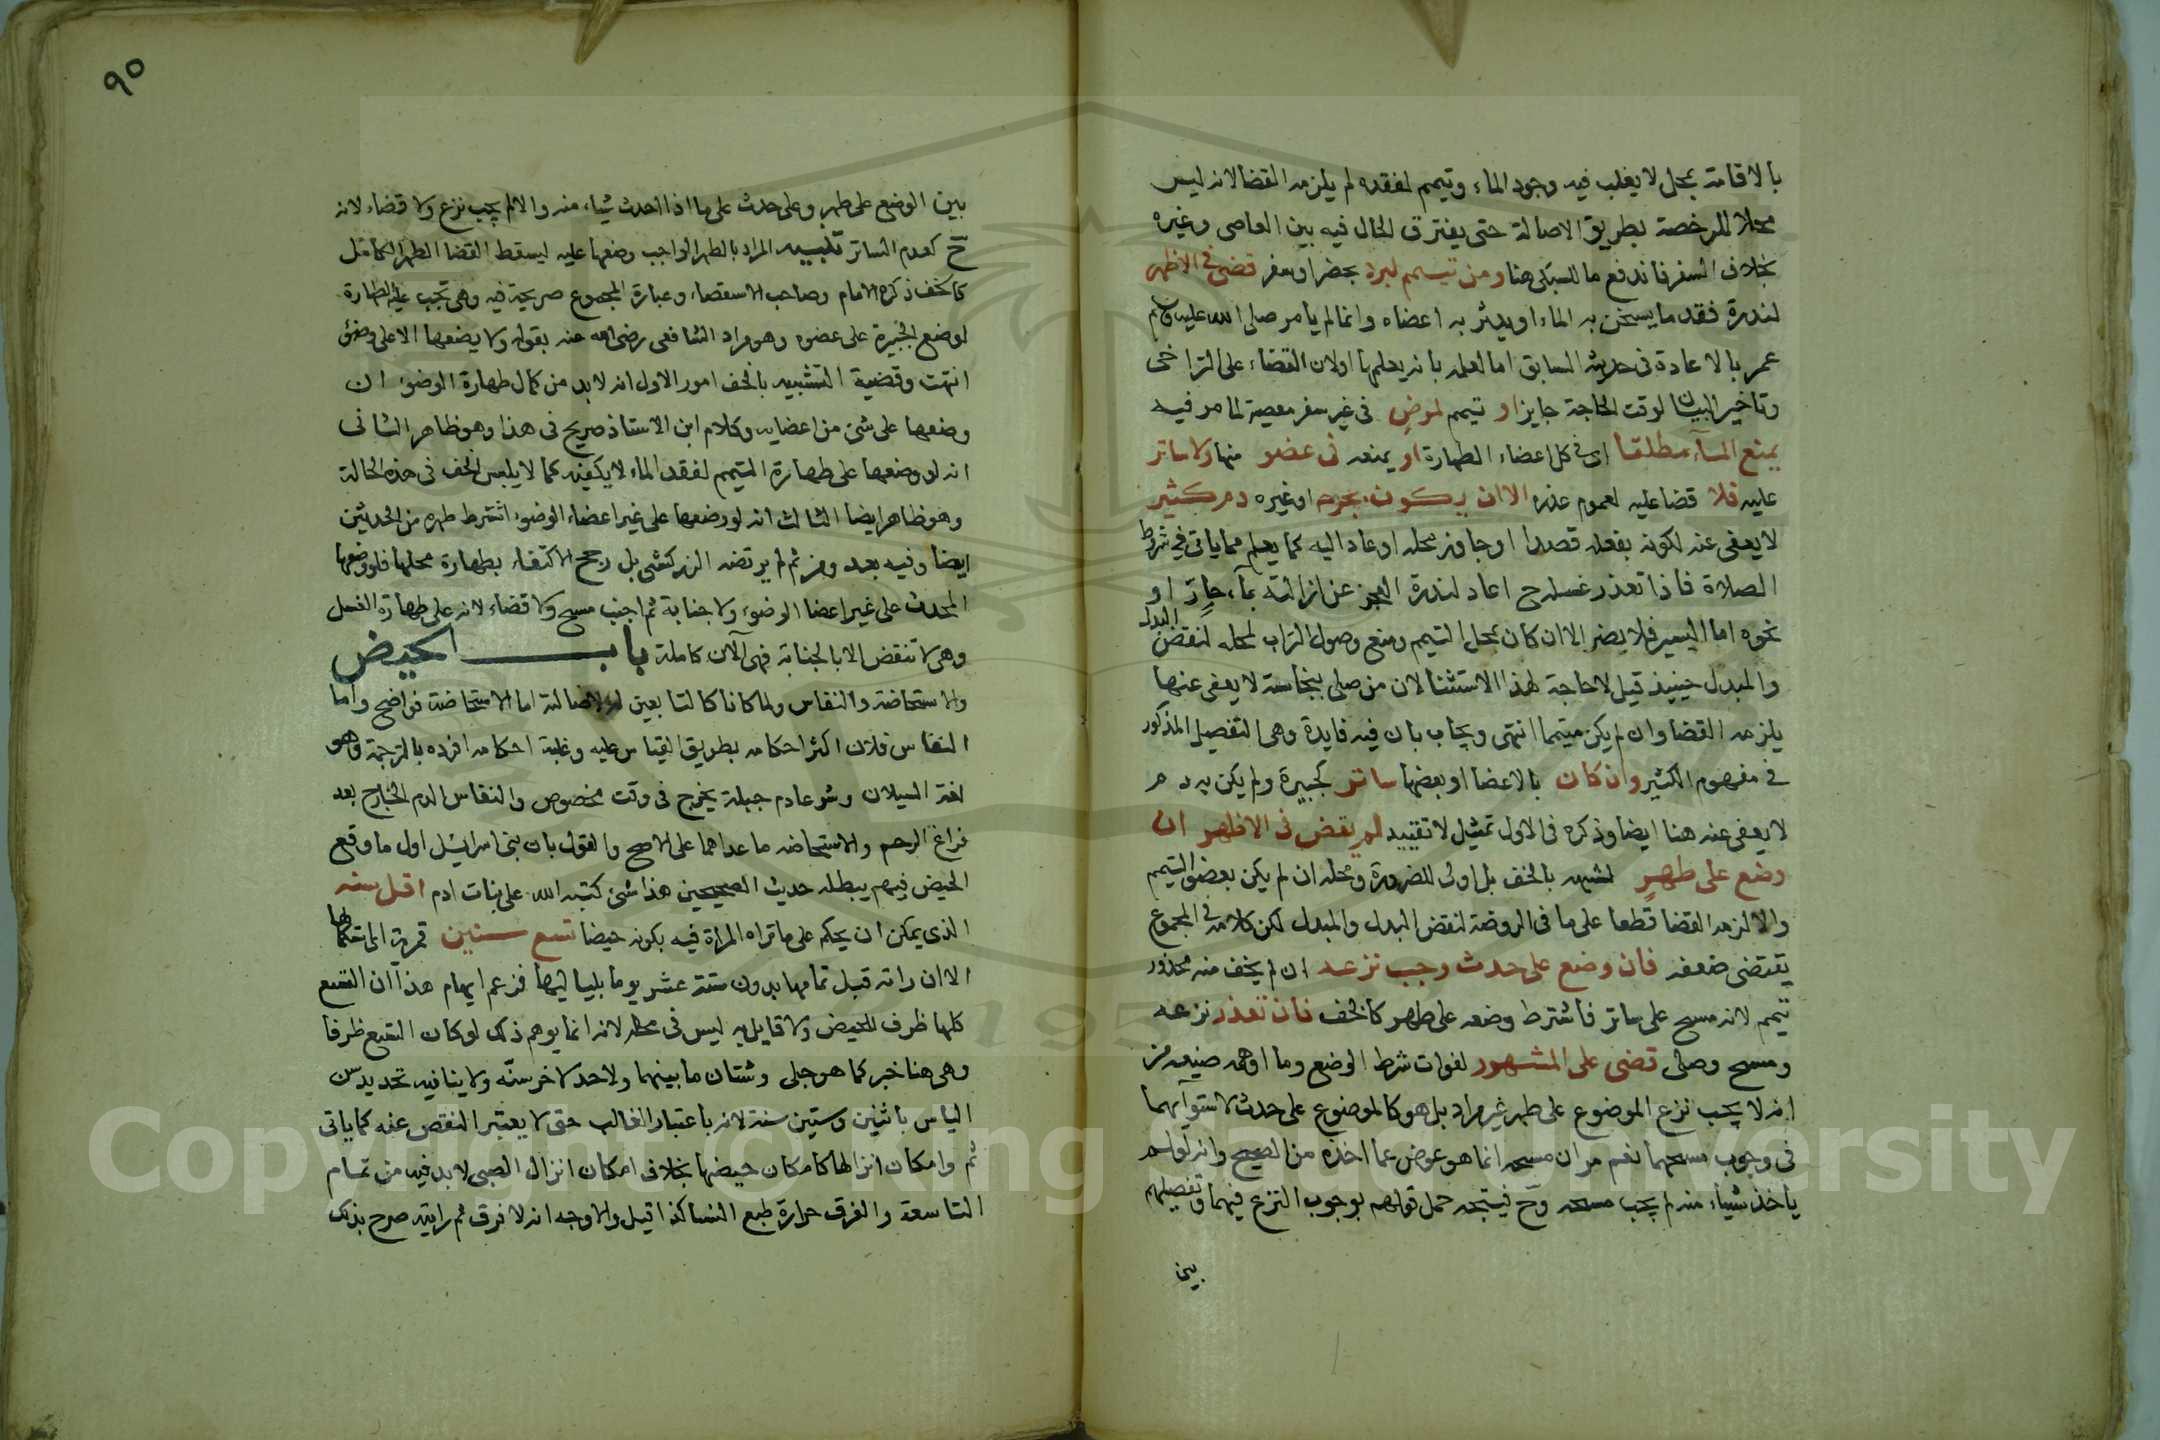 بالاقامة بمحل لا يغلب فيه وجود الماء وتيمم لفقده لم يلزمه القضا لانه ليس
محلا للرخصة بطريق الاصالة حتى يفترق الحال فيه بين العاصى وغيره
بخلاف السفر فاندفع ما للسبكى هنا ومن تيمم لبرد بحضر او سفر قضى فى الاظهر
لندرة فقد ما يسخن به الماء او يدثر به اعضاه وانما لم يامر صلى الله عليه وسلم
عمر بالاعادة فى حديثه السابق اما لعلمه بانه يعلمها او لان القضاء على التراخى
وتاخير البيان لوقت الحاجة جايز او تيمم لمرض فى غير سفر معصية لما مر فيه
يمنع الماء مطلقا اى فى كل اعضاء الطهارة او يمنعه فى عضو منها ولا ساتر
عليه فلا قضا عليه لعموم عذره الا ان يكون بجرحه او غيره دم كثير
لا يعفى عنه لكونه بفعله قصدا او جاوز محله او عاد اليه كما يعلم مما ياتى فى شروط
الصلاة فاذا تعذر غسله ح اعاد لندرة العجز عن ازالته بماء حار او
نحوه اما اليسير فلا يضر الا ان كان بمحل التيمم ومنع وصول التراب لمحله لنقص البدل
والمبدل حينيذ قيل لا حاجة لهذا الاستثنا لان من صلى بنجاسة لا يعفى عنها
يلزمه القضا وان لم يكن متيمما انتهى ويجاب بان فيه فايدة وهى التفصيل المذكور
فى مفهوم الكثير وان كان بالاعضا او بعضها ساتر كجبيرة ولم يكن به دم
لا يعفى عنه هنا ايضا وذكره فى الاول تمثيل لا تقييد لم يقض فى الاظهر ان
وضع على طهر لشبهه بالخف بل اولى للضرورة ومحله ان لم يكن بعضو التيمم
والا لزمه القضا قطعا على ما فى الروضة لنقص البدل والمبدل لكن كلامه فى المجموع
يقتضى ضعفه فان وضع على حدث وجب نزعه ان لم يخف منه محذور
تيمم لانه مسح على ساتر فاشترط وضعه على طهر كالخف فان تعذر نزعه
ومسح وصلى قضى على المشهور لفوات شرط الوضع وما اوهمه صنيعه من
انه لا يجب نزع الموضوع على طهر غير مراد بل هو كالموضوع على حدث لاستوآيهما
فى وجوب مسحهما نعم مر ان مسحه انما هو عوض عما اخذه من الصحيح وانه لو لم
ياخذ شيئا منه لم يجب مسحه وح فيتجه حمل قولهم بوجوب النزع فيهما وتفصيلهم
بين
٩٥
بين الوضع على طهر وعلى حدث على ما اذا اخذت شيئا منه والا لم يجب نزع ولا قضاء لانه
ح كعدم الساتر تنبيه المراد بالطهر الواجب وضعها عليه ليسقط القضا الطهر الكامل
كالخف ذكره الامام وصاحب الاستقصاء وعبارة المجموع صريحة فيه وهى تجب عليه الطهارة
لوضع الجبيرة على عضوه وهو مراد الشافعى رضى الله عنه بقوله ولا يضعها الا على وضوء
انتهت وقضية التشبيه بالخف امور الاول انه لا بد من كمال طهارة الوضوء ان
وضعها على شئ من اعضايه وكلام ابن الاستاذ صريح فى هذا وهو ظاهر الثانى
انه لو وضعها على طهارة التيمم لفقد الماء لا يكفيه كما لا يلبس الخف فى هذه الحالة
وهو ظاهر ايضا الثالث انه لو وضعها على غير اعضاء الوضوء اشترط طهره من الحدثين
ايضا وفيه بعد ومن ثم لم يرتضه الزركشى بل رجح الاكتفاء بطهارة محلها فلو وضعها
المحدث على غير اعضا الوضوء ولا جنابة ثم اجنب مسح ولا قضاء لانه على طهارة الغسل
وهى لا تنتقض الا بالجنابة فهى الآن كاملة باب الحيض
والاستحاضة والنفاس ولما كانا كالتابعين له لاصالته اما الاستحاضة فواضح واما
النفاس فلان اكثر احكامه بطريق القياس عليه وغلبة احكامه افرده بالترجمة وهو
لغة السيلان وشرعا دم جبلة يخرج فى وقت مخصوص والنفاس الدم الخارج بعد
فراغ الرحم والاستحاضة ما عداهما على الاصح والقول بان بنى اسرائيل اول ما وقع
الحيض فيهم يبطله حديث الصحيحين هذا شئ كتبه الله على بنات ادم اقل سنه
الذى يمكن ان يحكم على ما تراه المراة فيه بكونه حيضا تسع سنين قمرية استكملتها
الا ان راته قبل تمامها بدون ستة عشر يوما بلياليها فزعم ايهام هذا ان التسع
كلها ظرف للحيض ولا قايل به ليس فى محله لانه انما يوهم ذلك لو كان التسع ظرفا
وهى هنا خبر كما هو جلى وشتان ما بينهما ولا حد لاخر سنّه ولا ينافيه تحديد سن
الياس باثنين وستين سنة لانه باعتبار الغالب حتى لا يعتبر النقص عنه كما ياتى
ثم وامكان انزالها كامكان حيضها بخلاف امكان انزال الصبى لا بد فيه من تمام
التاسعة والفرق حرارة طبع النسا كذا قيل والاوجه انه لا فرق ثم رايته صرح بذلك
Copyright © King Saud University